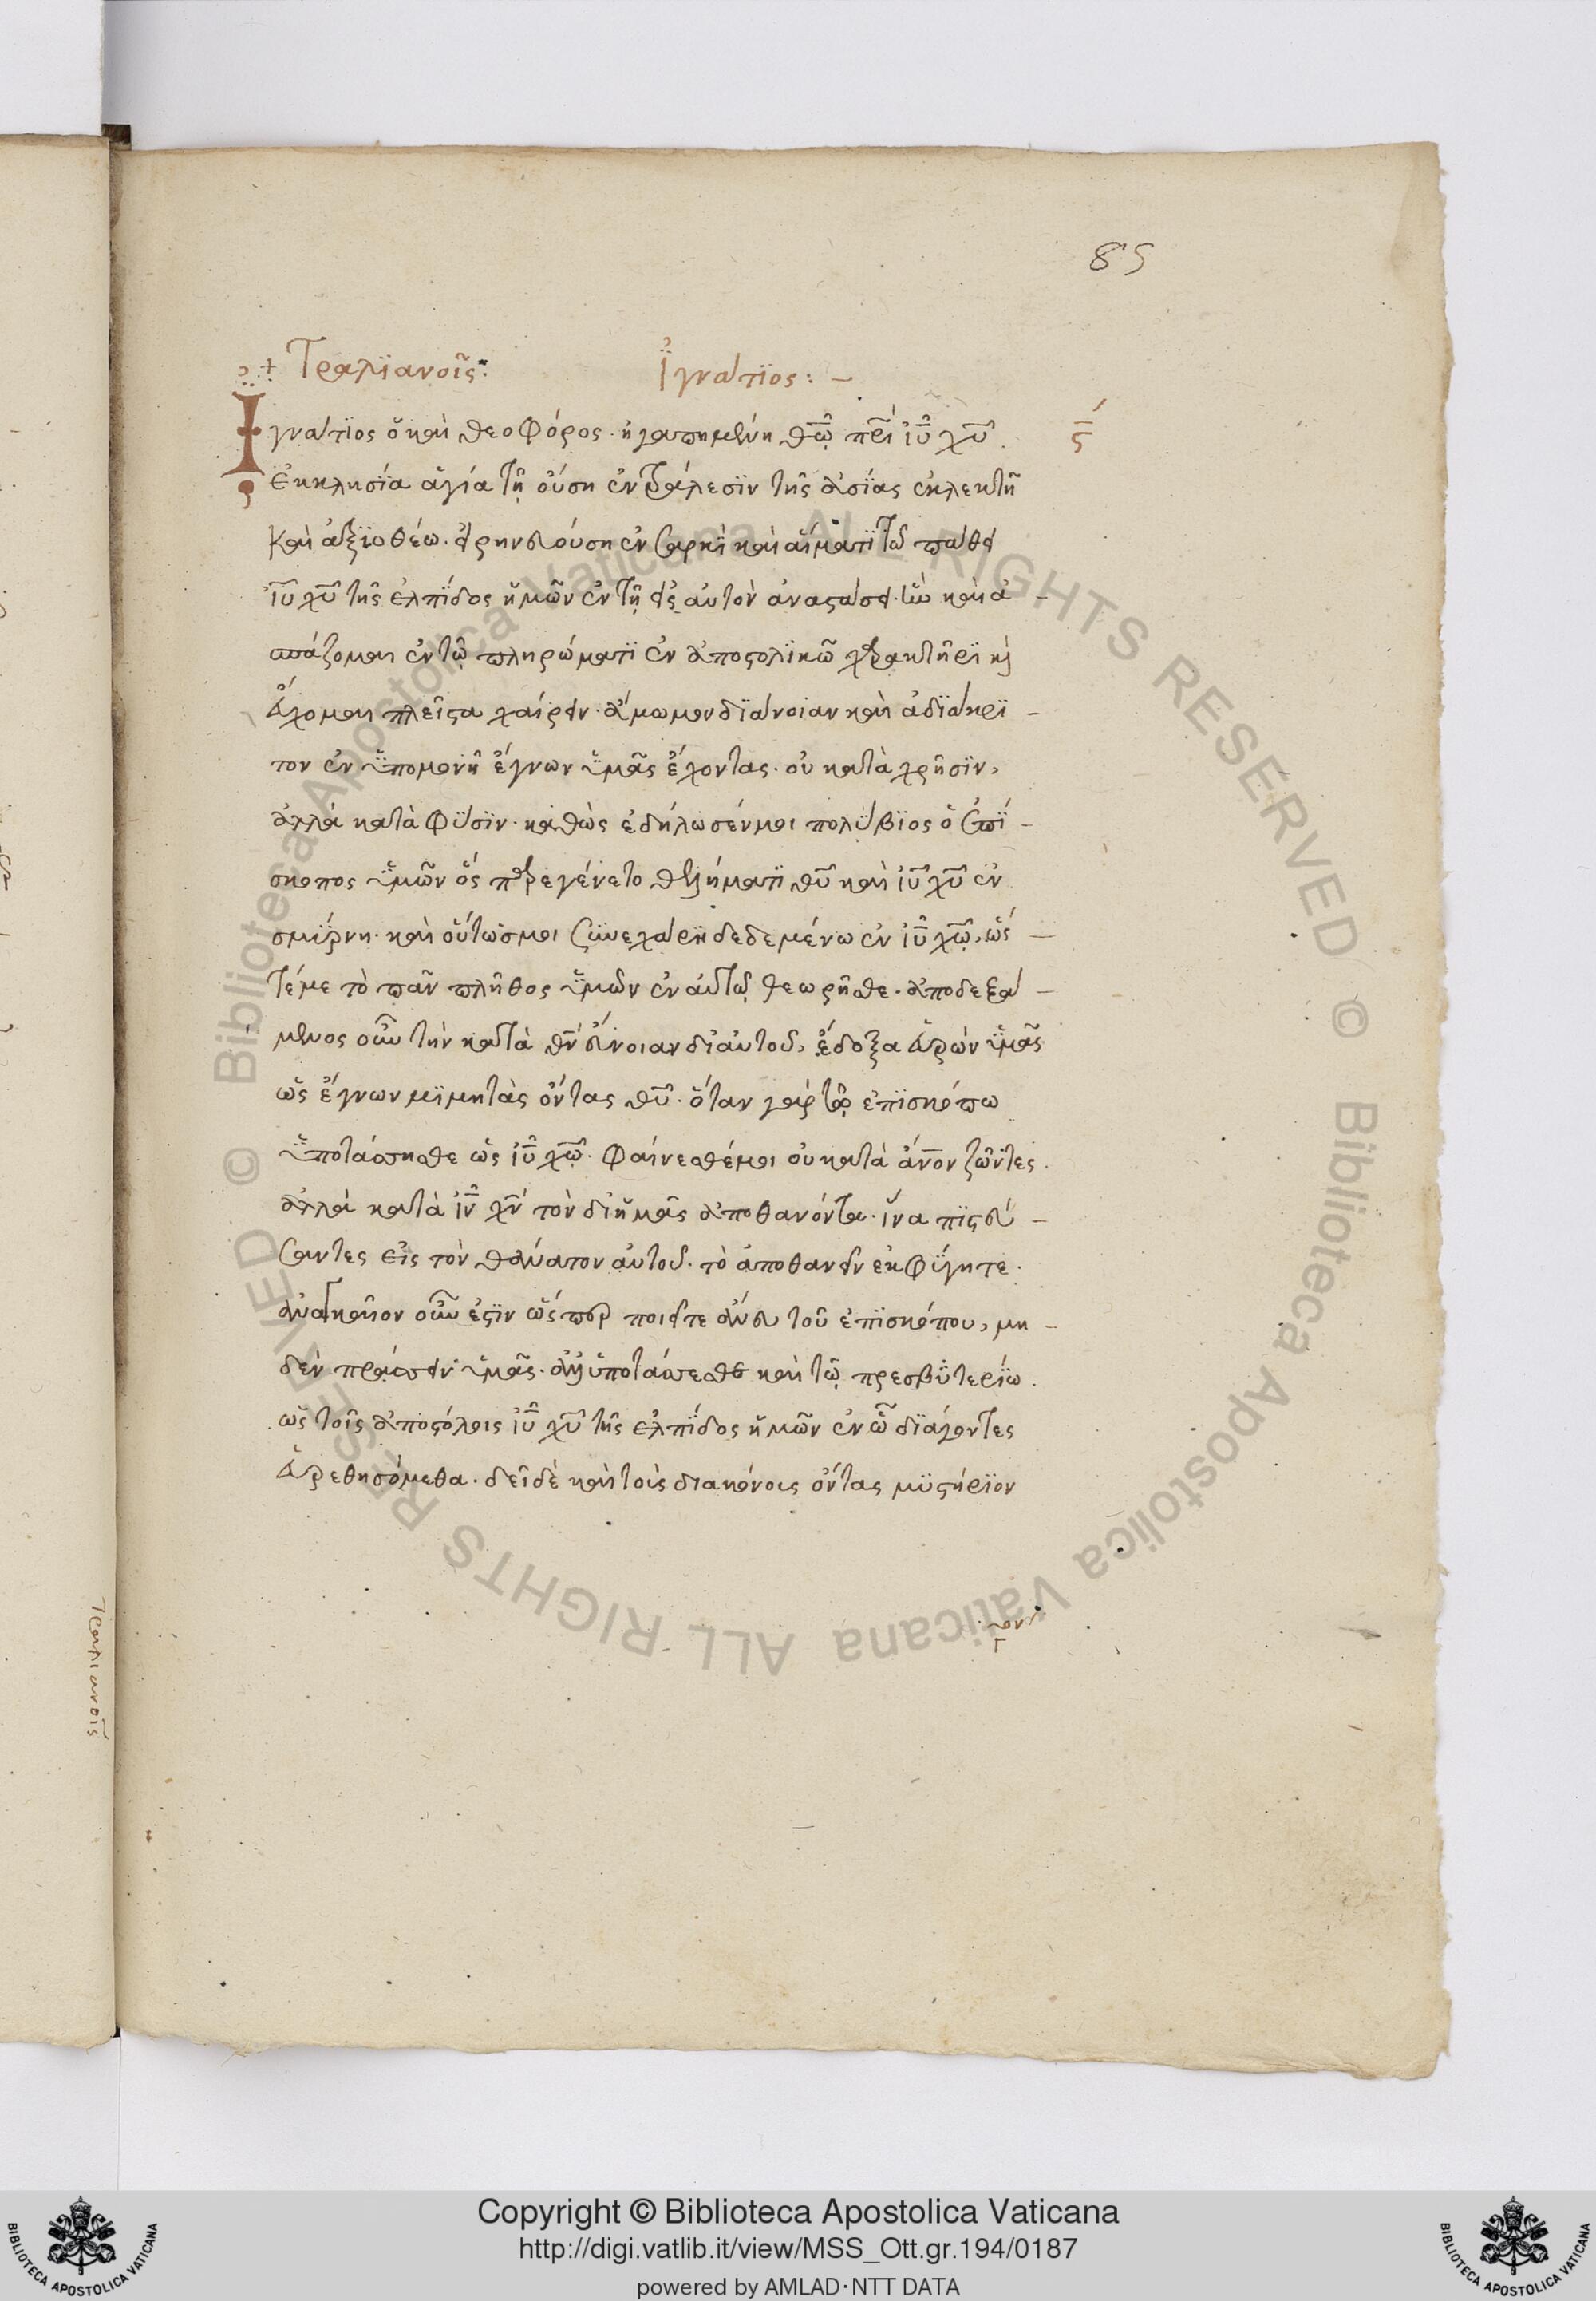 85
Τραλϊανοῖς: Ἰγνάτϊος: —
Ιγνάτϊος ὁ καὶ θεοφόρος · ἠγαπημένη θω̅ πρι̅ ιυ̅ χυ̅ · ϛ̅
ἐκκλησία ἁγία τῇ οὔση ἐν τράλεσϊν τῆς ἀσίας ἐκλεκτῆ
καὶ ἀξϊοθέω · εἰρηνευούση ἐν σαρκὶ καὶ αἵματϊ τῶ πάθει
ιυ̅ χυ̅ τῆς ἐλπίδος ἡμῶν ἐν τῇ εἰς αὐτὸν ἀναστάσει · ἣν καὶ ἀ –
σπάζομαι ἐν τῷ πληρώματϊ ἐν ἀποστολϊκῶ χαρακτῆρϊ κὶ
εὔχομαι πλεῖστα χαίρειν · ἄμωμον δϊάνοιαν καὶ ἀδϊάκρϊ –
τον ἐν ὑπομονῆ ἔγνων ὑμᾶς ἔχοντας · οὐ κατὰ χρῆσϊν,
ἀλλὰ κατὰ φύσϊν · καθὼς ἐδήλωσέν μοι πολύβϊος ὁ ἐπί –
σκοπος ὑμῶν ὅς παρεγένετο θελήματϊ θυ̅ καὶ ιυ̅ χυ̅ ἐν
σμύρνη · καὶ οὕτως μοι συνεχάρη δεδεμένω ἐν ιυ̅ χω̅, ὥς –
τέ με τὸ πᾶν πλῆθος ὑμῶν ἐν αὐτῷ θεωρῆσθε · ἀποδεξά –
μενος οὖν τὴν κατὰ θν̅ εὔνοιαν δι αὐτοῦ, ἔδοξα εὑρὼν ὑμᾶς
ὡς ἔγνων μϊμητὰς ὄντας θυ̅ · ὅταν γὰρ τῷ ἐπϊσκόπω
ὑποτάσσησθε ὡς ιυ̅ χω̅ · φαίνεσθέ μοι οὐ κατὰ α̅νον ζῶντες ·
ἀλλὰ κατὰ ιν̅ χν̅ τὸν δι ἡμᾶς ἀποθανόντα · ἵνα πϊστεύ –
σαντες εἰς τὸν θάνατον αὐτοῦ · τὸ ἀποθανεῖν ἐκφύγητε ·
ἀναγκαῖον οὖν ἐστϊν ὥσπερ ποιεῖτε ἄνευ τοῦ ἐπϊσκόπου, μη –
δὲν πράσσειν ὑμᾶς · ἀλλ ὑποτάσσεσθε καὶ τῷ πρεσβυτερίω ·
ὡς τοῖς ἀποστόλοις ιυ̅ χυ̅ τῆς ἐλπίδος ἡμῶν ἐν ᾧ δϊάγοντες
εὑρεθησόμεθα · δεῖ δὲ καὶ τοὺς διακόνους ὄντας μϋστήρϊον
τραλιανοῖς
Copyright © Biblioteca Apostolica Vaticana
http://digi.vatlib.it/view/MSS_Ott.gr.194/0187
powered by AMLAD·NTT DATA